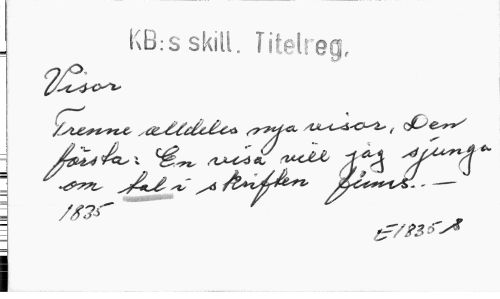 KB:s skill. Titelreg.
Visor
Trenne alldeles nya visor, Den
första: En visa vill jag sjunga
om tal i skriften finns.. —
1835
E1835 s